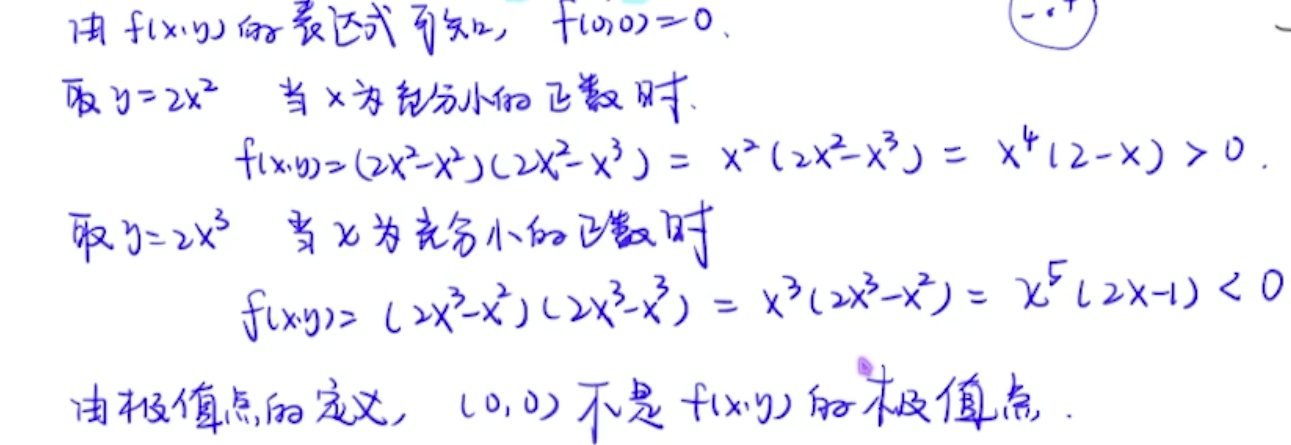 由 f(x,y) 的表达式可知, f(0,0)=0.
取 y=2x² 当 x 为充分小的正数时.
f(x,y)=(2x²-x²)(2x²-x³) = x²(2x²-x³) = x⁴(2-x) > 0.
取 y=2x³ 当 x 为充分小的正数时
f(x,y)= (2x³-x²)(2x³-x³) = x³(2x³-x²) = x⁵(2x-1) < 0
由极值点的定义, (0,0) 不是 f(x,y) 的极值点.